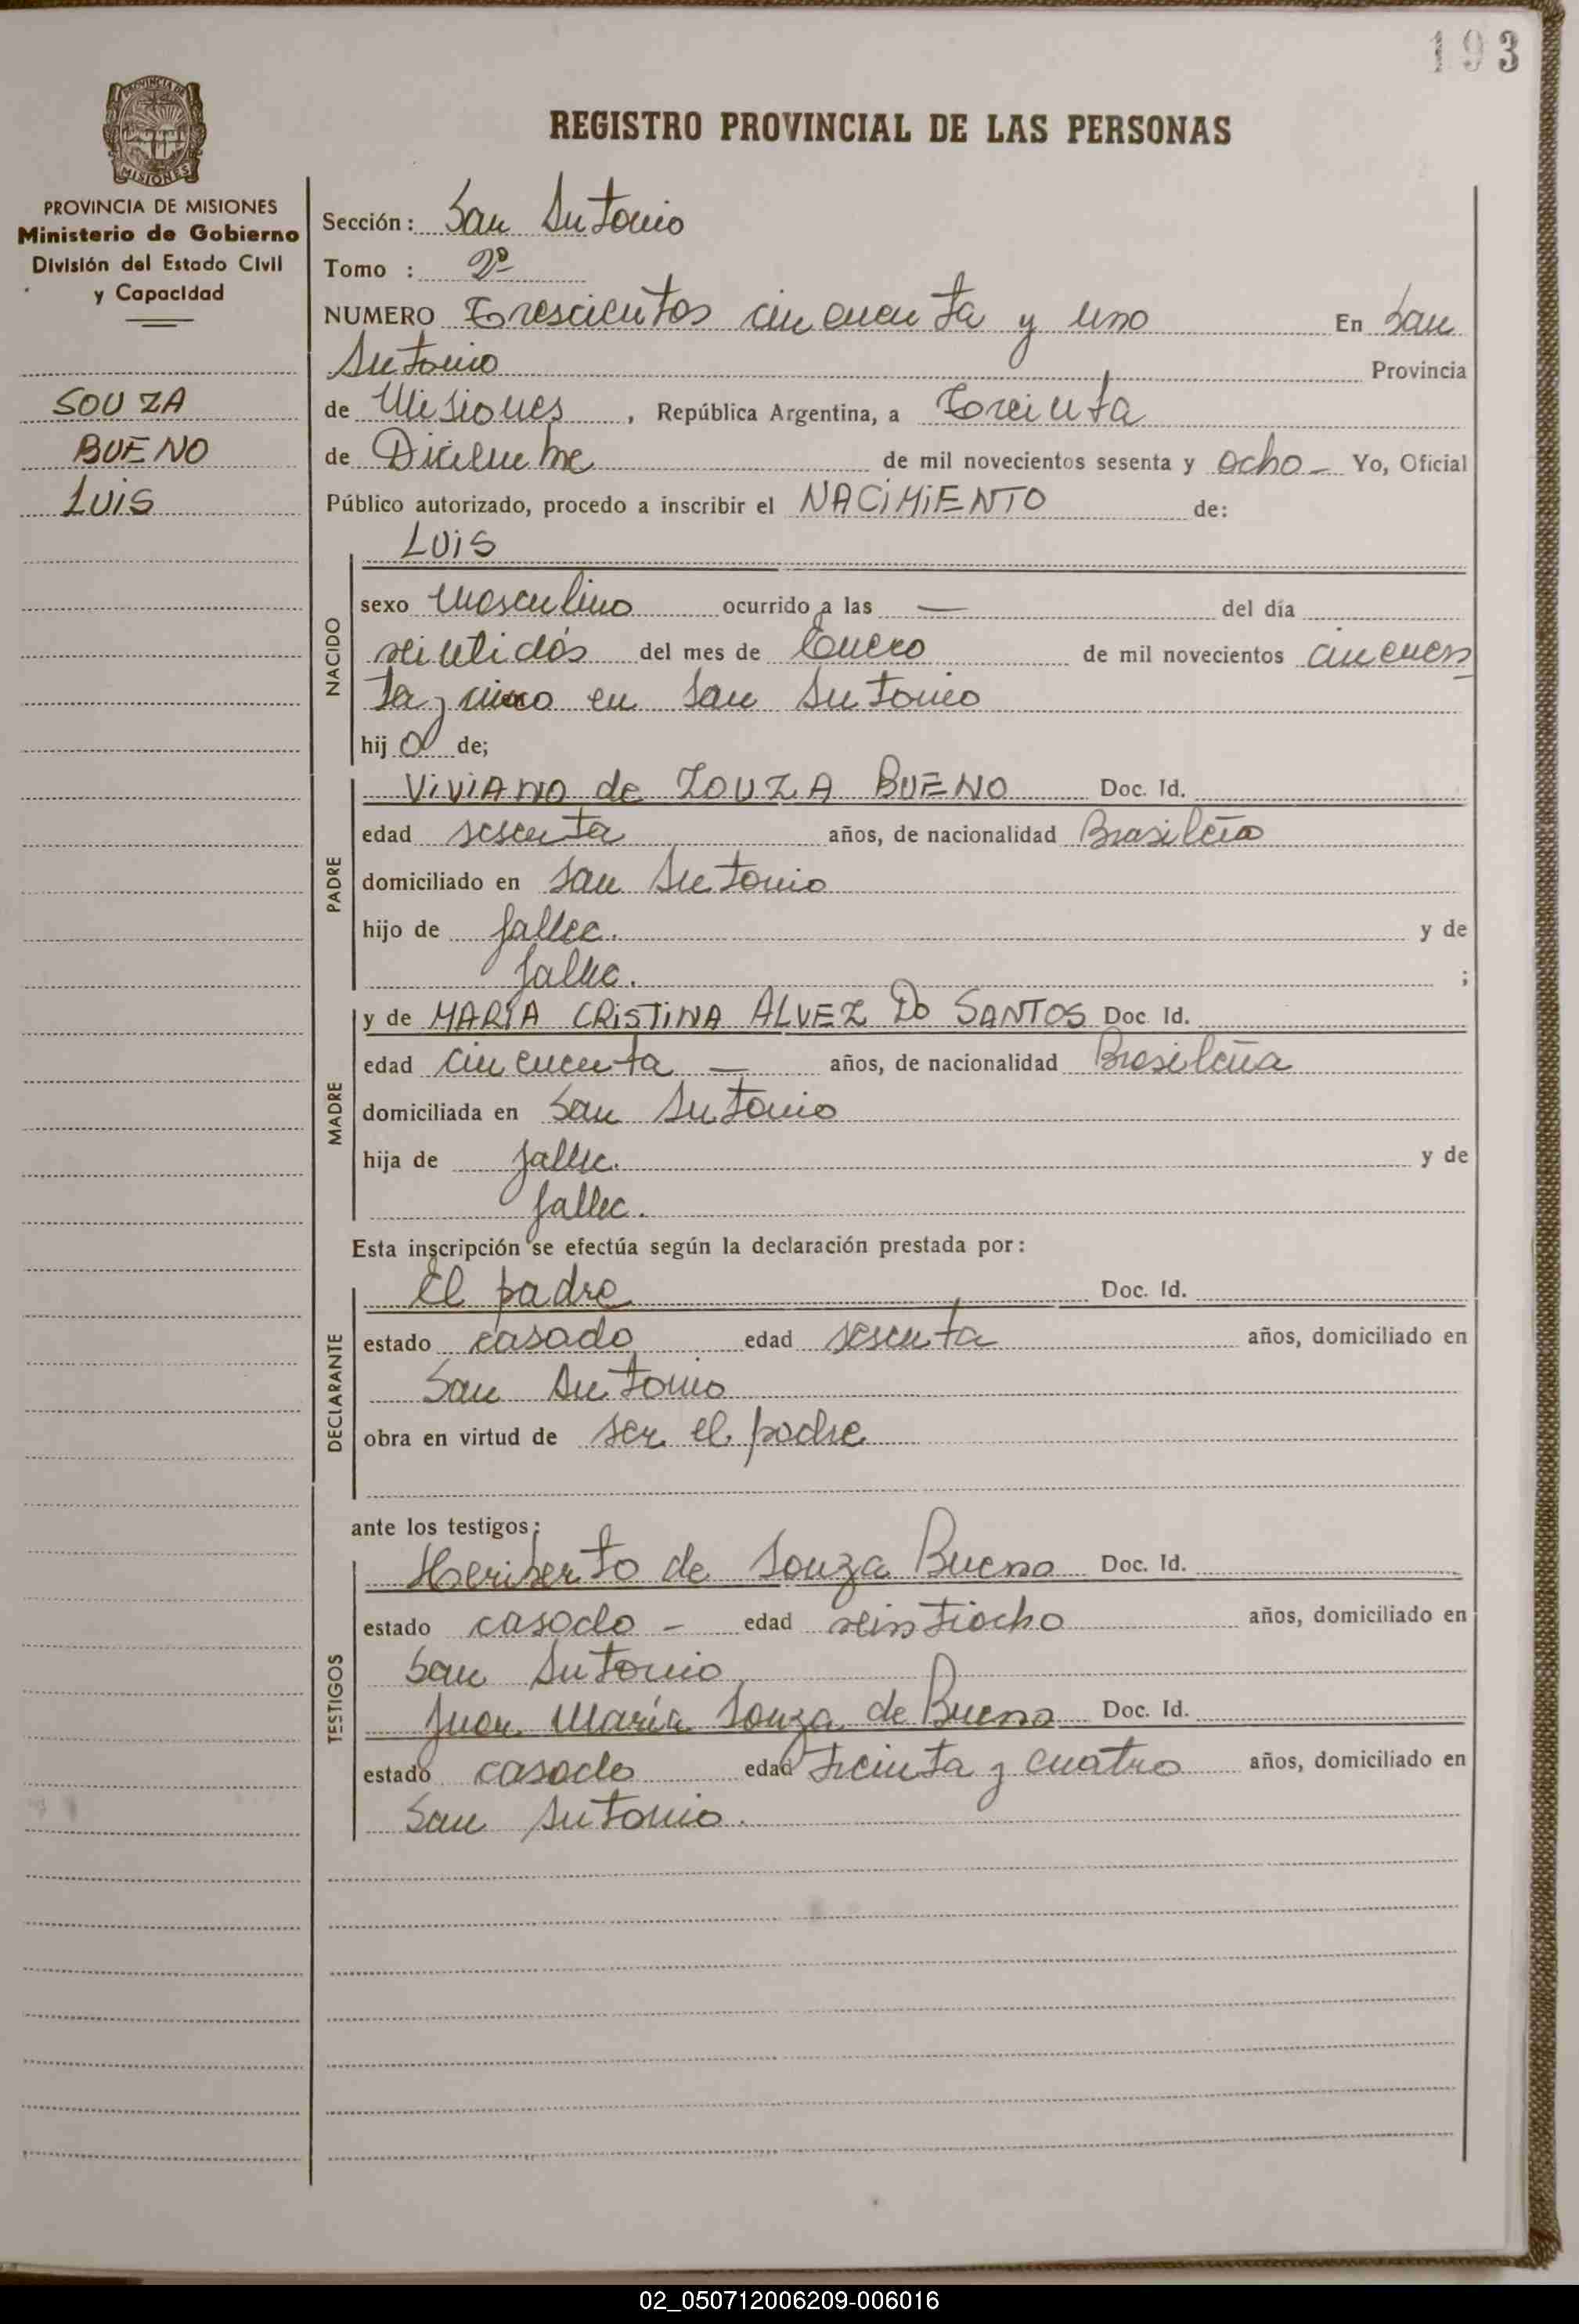 193
REGISTRO PROVINCIAL DE LAS PERSONAS
PROVINCIA DE
MISIONES
PROVINCIA DE MISIONES
Ministerio de Gobierno
División del Estado Civil
y Capacidad
SOUZA
BUENO
LUIS
Sección: San Antonio
Tomo : 2º
NUMERO Trescientos cincuenta y uno En San
Antonio Provincia
de Misiones, República Argentina, a Treinta
de Diciembre de mil novecientos sesenta y ocho - Yo, Oficial
Público autorizado, procedo a inscribir el NACIMIENTO de:
NACIDO
LUIS
sexo Masculino ocurrido a las — del día
veintidós del mes de Enero de mil novecientos cincuen
ta y cinco en San Antonio
hijo de;
PADRE
VIVIANO de ZOUZA BUENO Doc. Id.
edad sesenta años, de nacionalidad Brasileña
domiciliado en San Antonio
hijo de fallec. y de
fallec. ;
MADRE
y de MARÍA CRISTINA ALVEZ DO SANTOS Doc Id.
edad cincuenta — años, de nacionalidad Brasileña
domiciliada en San Antonio
hija de fallec. y de
fallec.
Esta inscripción se efectúa según la declaración prestada por:
DECLARANTE
El padre Doc. Id.
estado casado edad sesenta años, domiciliado en
San Antonio
obra en virtud de ser el padre
ante los testigos:
TESTIGOS
Heriberto de Souza Bueno Doc. Id.
estado casado - edad veintiocho años, domiciliado en
San Antonio
Juan María Souza de Bueno Doc. Id.
estado casado edad treinta y cuatro años, domiciliado en
San Antonio.
02_050712006209-006016